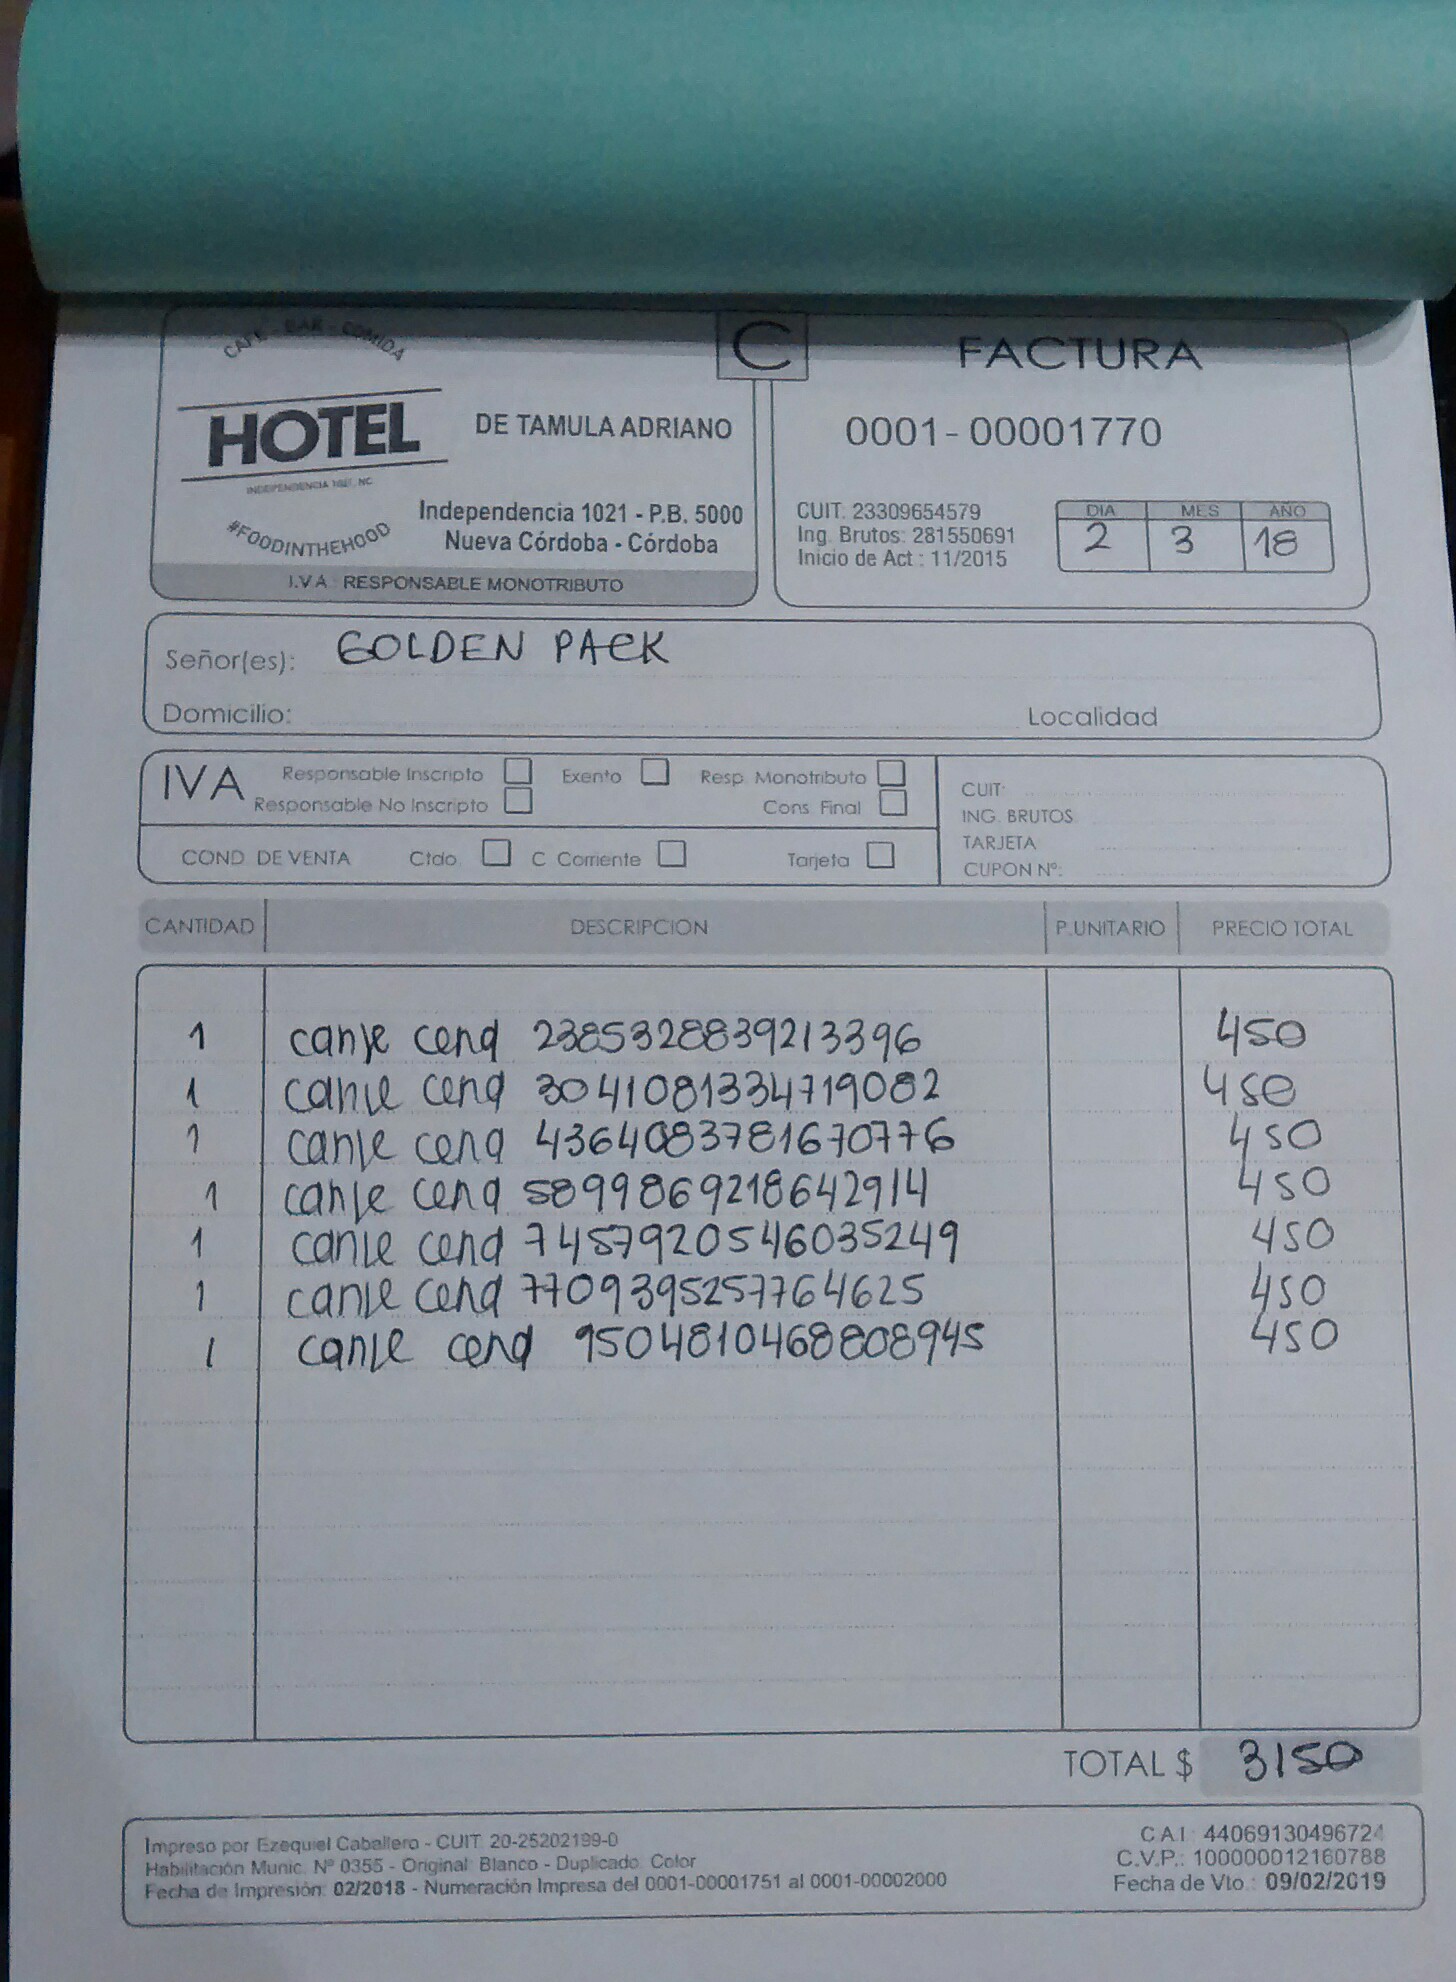 CAFE - BAR - COMIDA
HOTEL
DE TAMULA ADRIANO
INDEPENDENCIA 1021, NC
#FOODINTHEHOOD
Independencia 1021 - P.B. 5000
Nueva Córdoba - Córdoba
I.V.A. RESPONSABLE MONOTRIBUTO
C
FACTURA
0001-00001770
CUIT. 23309654579
Ing. Brutos: 281550691
Inicio de Act.: 11/2015
DIA MES AÑO
2 3 18
Señor(es): GOLDEN PACK
Domicilio: Localidad
IVA
Responsable Inscripto Exento Resp. Monotributo
Responsable No Inscripto Cons. Final
COND. DE VENTA Ctdo. C. Corriente Tarjeta
CUIT:
ING. BRUTOS
TARJETA
CUPON Nº:
CANTIDAD DESCRIPCION P.UNITARIO PRECIO TOTAL
1 canje cena 2385328839213396 450
1 canje cena 3041081334719082 450
1 canje cena 4364083781670776 450
1 canje cena 5899869218642914 450
1 canje cena 7457920546035249 450
1 canje cena 7709395257764625 450
1 canje cena 9504810468808945 450
TOTAL $ 3150
Impreso por Ezequiel Caballero - CUIT. 20-25202199-0
Habilitación Munic. Nº 0355 - Original: Blanco - Duplicado: Color
Fecha de Impresión: 02/2018 - Numeración Impresa del 0001-00001751 al 0001-00002000
C.A.I.: 44069130496724
C.V.P.: 100000012160788
Fecha de Vto.: 09/02/2019